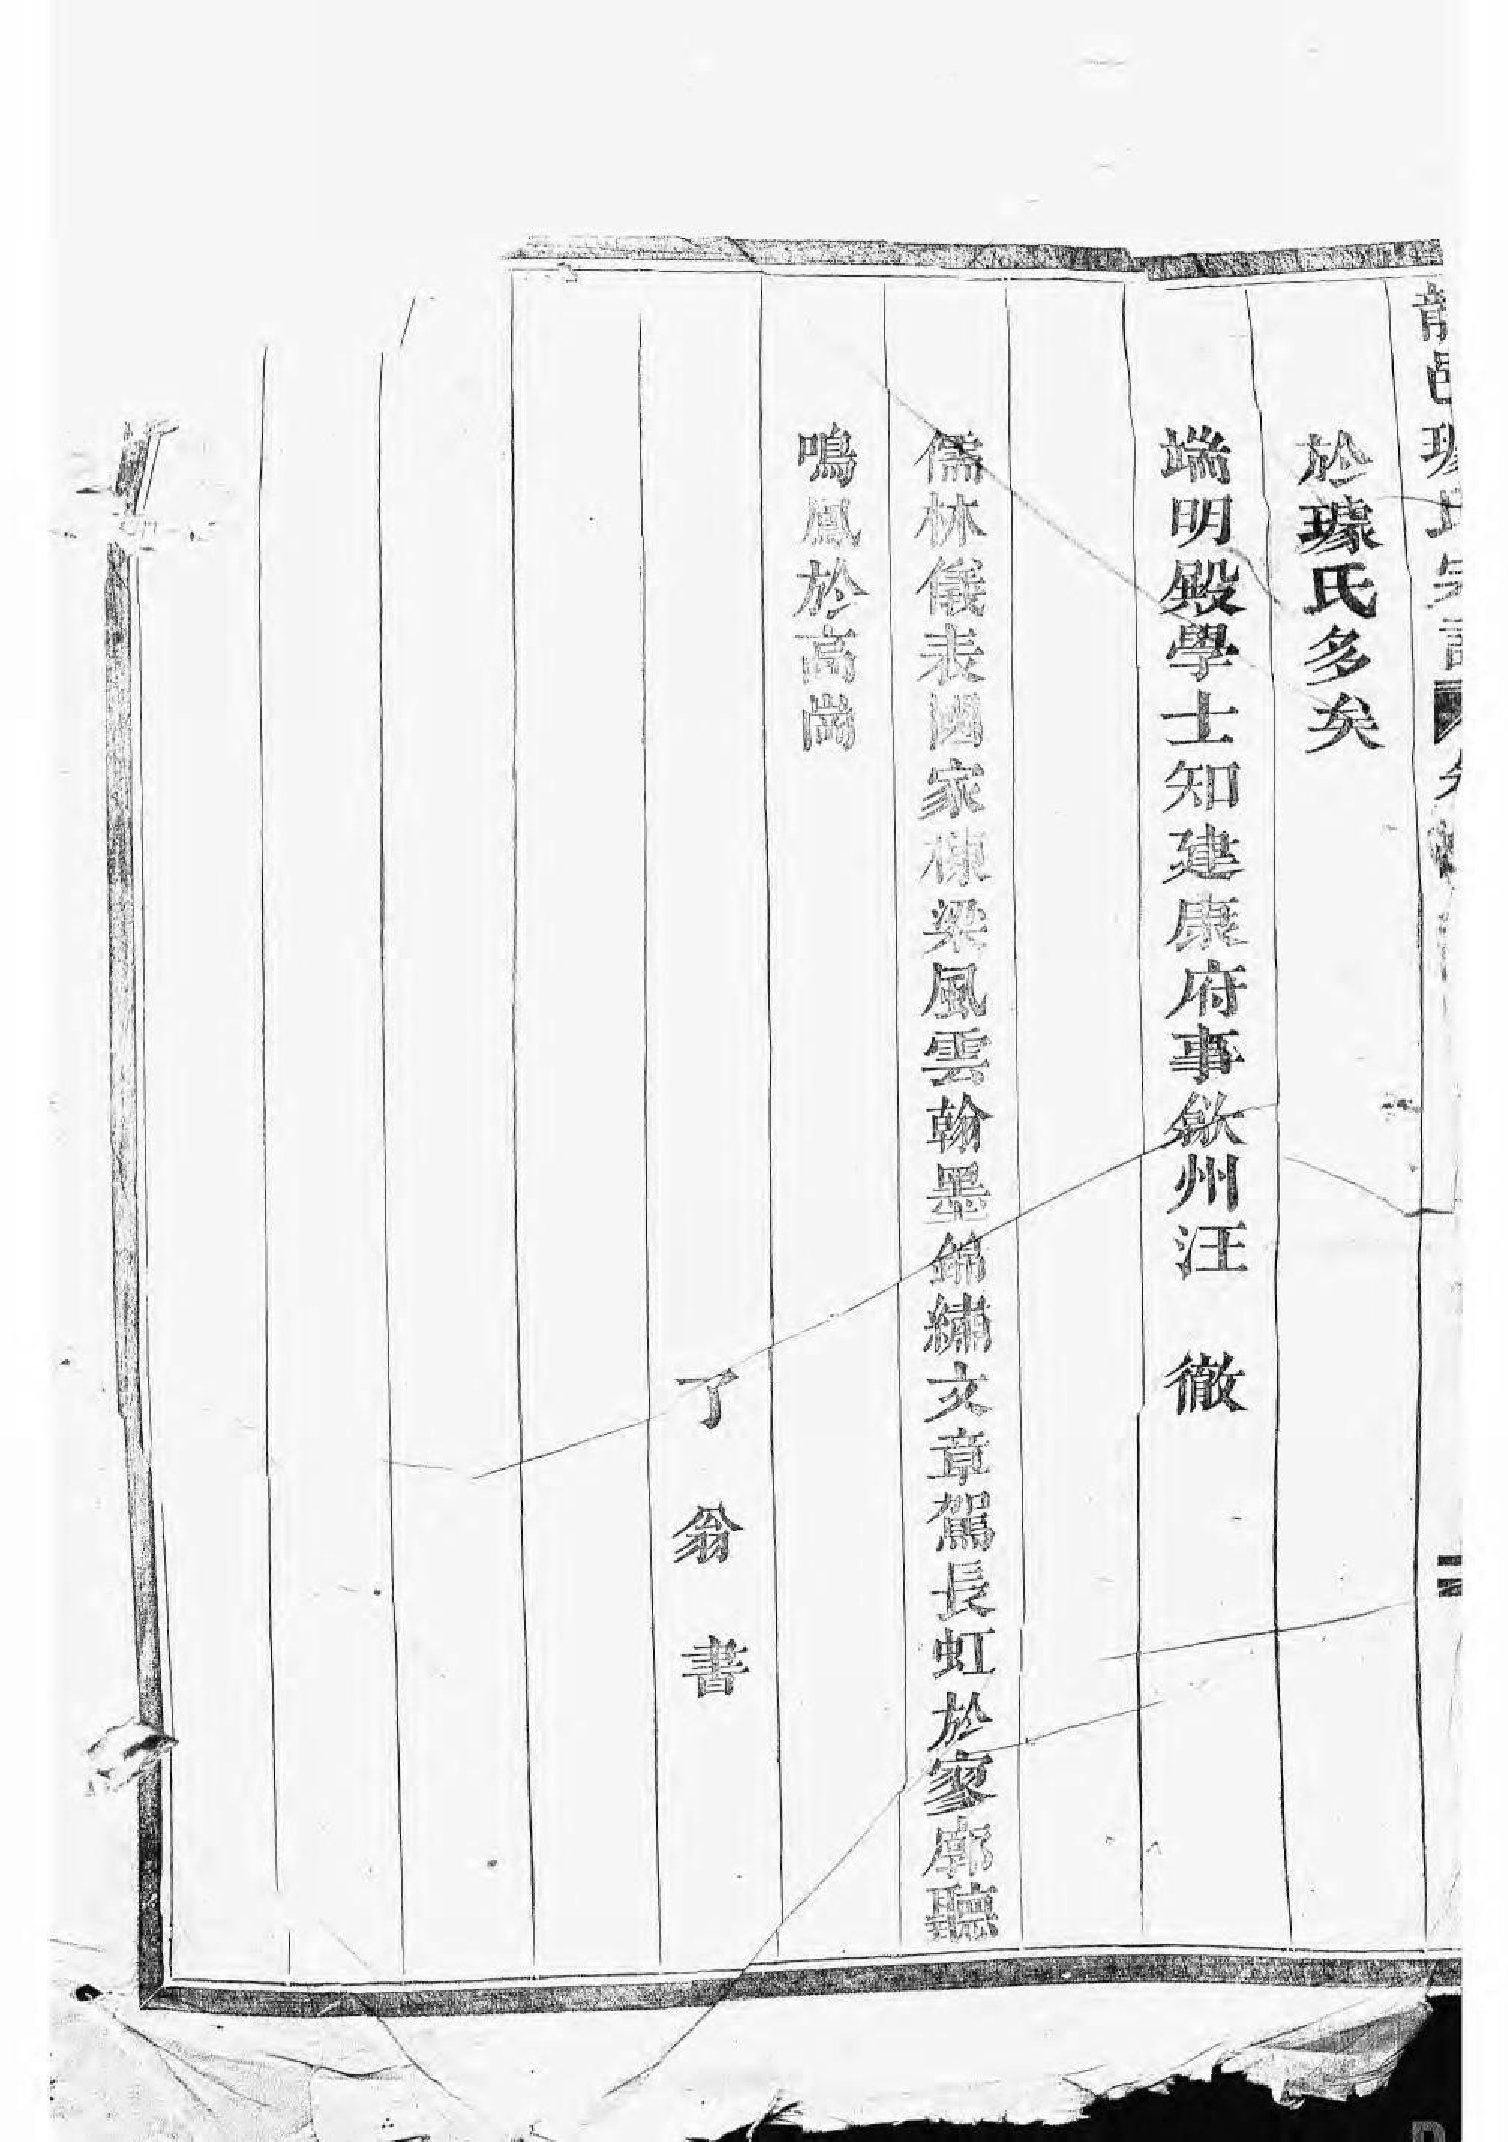 於璩氏多矣
端明殿學士知建康府事歙州汪 徹
儒林儀表國家棟梁風雲翰墨錦繡文章駕長虹於寥廓聽
鳴鳳於高崗
了翁書